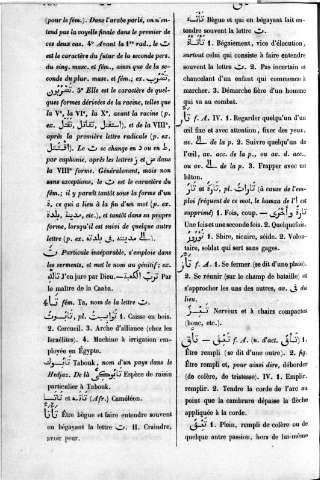 (pour le fém.). Dans l'arabe parlé, on n'en-
tend pas la voyelle finale dans le premier de
ces deux cas. 4° Avant la 1re rad., le ت
est le caractère du futur de la seconde pers.
du sing. masc. et fém., ainsi que de la se-
conde du plur. masc. et fém.; ex. تضرب,
تضربون. 5° Elle est le caractère de quel-
ques formes dérivées de la racine, telles que
la Ve, la VIe, la Xe, avant la racine (p.
ex. تقتل, تقاتل, استقتل), et de la VIIIe,
après la première lettre radicale (p. ex.
اقتتل). Le ت se change en د ou en ط,
par euphonie, après les lettres ز et ض dans
la VIIIe forme. Généralement, mais non
sans exceptions, le ت est le caractère du
fém.; il y paraît tantôt sous la forme d'un
ة, ce qui a lieu à la fin d'un mot (p. ex.
بلدة, مدينة, etc.), et tantôt en sa propre
forme, lorsqu'il est suivi de quelque autre
lettre (p. ex.
ت Particule inséparable, s'emploie dans
les serments, et met le nom au génitif; ex.
تالله J'en jure par Dieu. — ترب الكعبة Par
le maître de la Caaba.
تاء fém. Ta, nom de la lettre ت.
تابوت pl. توابيت 1. Caisse en bois.
2. Cercueil. 3. Arche d'alliance (chez les
Israélites). 4. Machine à irrigation em-
ployée en Égypte.
تابوك Tabouk, nom d'un pays dans le
Hedjaz. De là تابوكي Espèce de raisin
particulier à Tabouk.
(Afr.) Caméléon.
تأتأ Être bègue et faire entendre souvent
en bégayant la lettre ت. II. Craindre,
avoir peur.
تأتاء Bègue et qui en bégayant fait en-
tendre souvent la lettre ت.
تأتأة 1. Bégaiement, vice d'élocution,
surtout celui qui consiste à faire entendre
souvent la lettre ت. 2. Pas incertain et
chancelant d'un enfant qui commence à
marcher. 3. Démarche fière d'un homme
qui va au combat.
تأر f. A. IV. 1. Regarder quelqu'un d'un
œil fixe et avec attention, fixer des yeux,
av. الى de la p. 2. Suivre quelqu'un de
l'œil, av. acc. de la p., ou av. d. acc.
ou av. الى de la p. 3. Frapper avec un
bâton.
تارة et تأرة, pl. تارات (à cause de l'em-
ploi fréquent de ce mot, le hamza de l'ا est
supprimé) 1. Fois, coup. — تارة وأخرى
Une fois et une seconde fois. 2. Quelquefois.
تؤرور 1. Sbire, sicaire, séide. 2. Volon-
taire, soldat qui sert sans gages.
تأز f. A. 1. Se fermer (se dit d'une plaie).
2. Se réunir (sur le champ de bataille) et
s'approcher les uns des autres, av. فى du
lieu.
Nerveux et à chairs compactes
(bouc, etc.).
تأق — تئق f. A. (n. d'act. تأق) 1.
Être rempli (se dit d'une outre). 2. fig.
Être rempli et, pour ainsi dire, déborder
(de colère, de tristesse). IV. 1. Emplir,
remplir. 2. Tendre la corde de l'arc au
point que la cambrure dépasse la flèche
appliquée à la corde.
تئق 1. Plein, rempli de colère ou de
quelque autre passion, hors de lui-même